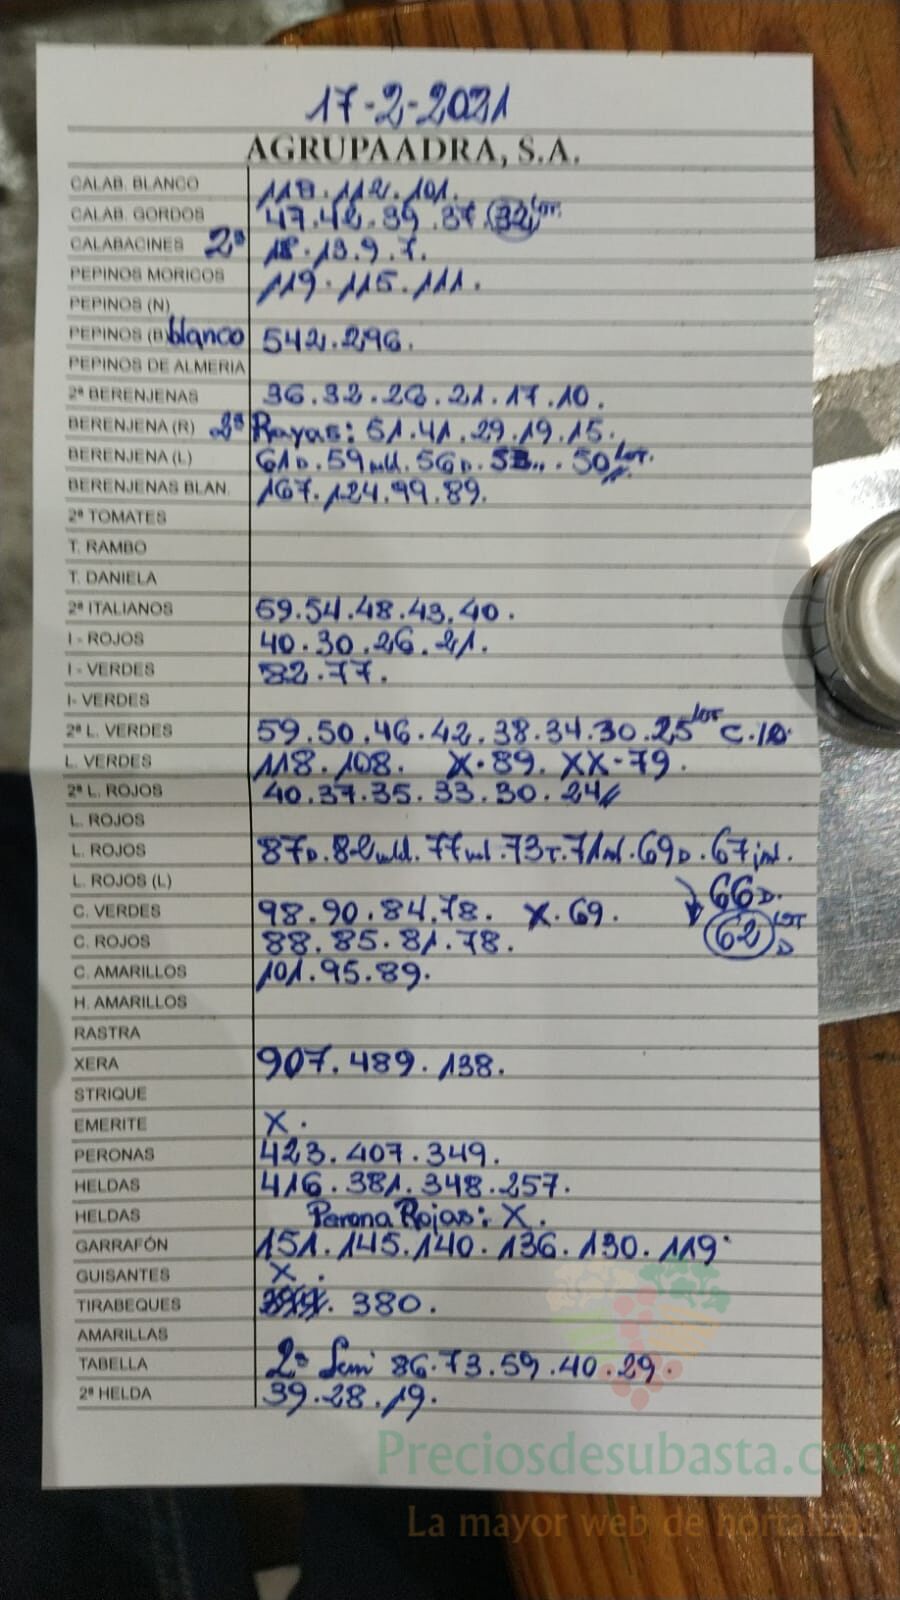 17-2-2021
AGRUPAADRA, S.A.
CALAB. BLANCO 118.112.101.
CALAB. GORDOS 47.42.39.37.(32) LOT.
CALABACINES 2ª 18.13.9.7.
PEPINOS MORICOS 119.115.111.
PEPINOS (N)
PEPINOS (B) blanco 542.296.
PEPINOS DE ALMERIA
2ª BERENJENAS 36.32.26.21.17.10.
BERENJENA (R) 2ª Rayas: 51.41.29.19.15.
BERENJENA (L) 61D.59 mld.56D. 50 LOT.
BERENJENAS BLAN. 167.124.99.89.
2ª TOMATES
T. RAMBO
T. DANIELA
2ª ITALIANOS 59.54.48.43.40.
I - ROJOS 40.30.26.21.
I - VERDES 82.77.
I- VERDES
2ª L. VERDES 59.50.46.42.38.34.30.25 LOT
L. VERDES 118.108. X.89. XX-79.
2ª L. ROJOS 40.37.35.33.30.24
L. ROJOS
L. ROJOS 87D.82 mld.77 ml.73T.71 ml.69D.67
L. ROJOS (L) 66D.
C. VERDES 98.90.84.78. X.69. (62) LOT D
C. ROJOS 88.85.81.78.
C. AMARILLOS 101.95.89.
H. AMARILLOS
RASTRA
XERA 907.489.138.
STRIQUE
EMERITE X.
PERONAS 423.407.349.
HELDAS 416.381.348.257.
HELDAS Perona Rojas: X.
GARRAFÓN 151.145.140.136.130.119.
GUISANTES X.
TIRABEQUES 380.
AMARILLAS
TABELLA 2ª Semi 86.73.59.40.29.
2ª HELDA 39.28.19.
Preciosdesubasta.com
La mayor web de hortalizas